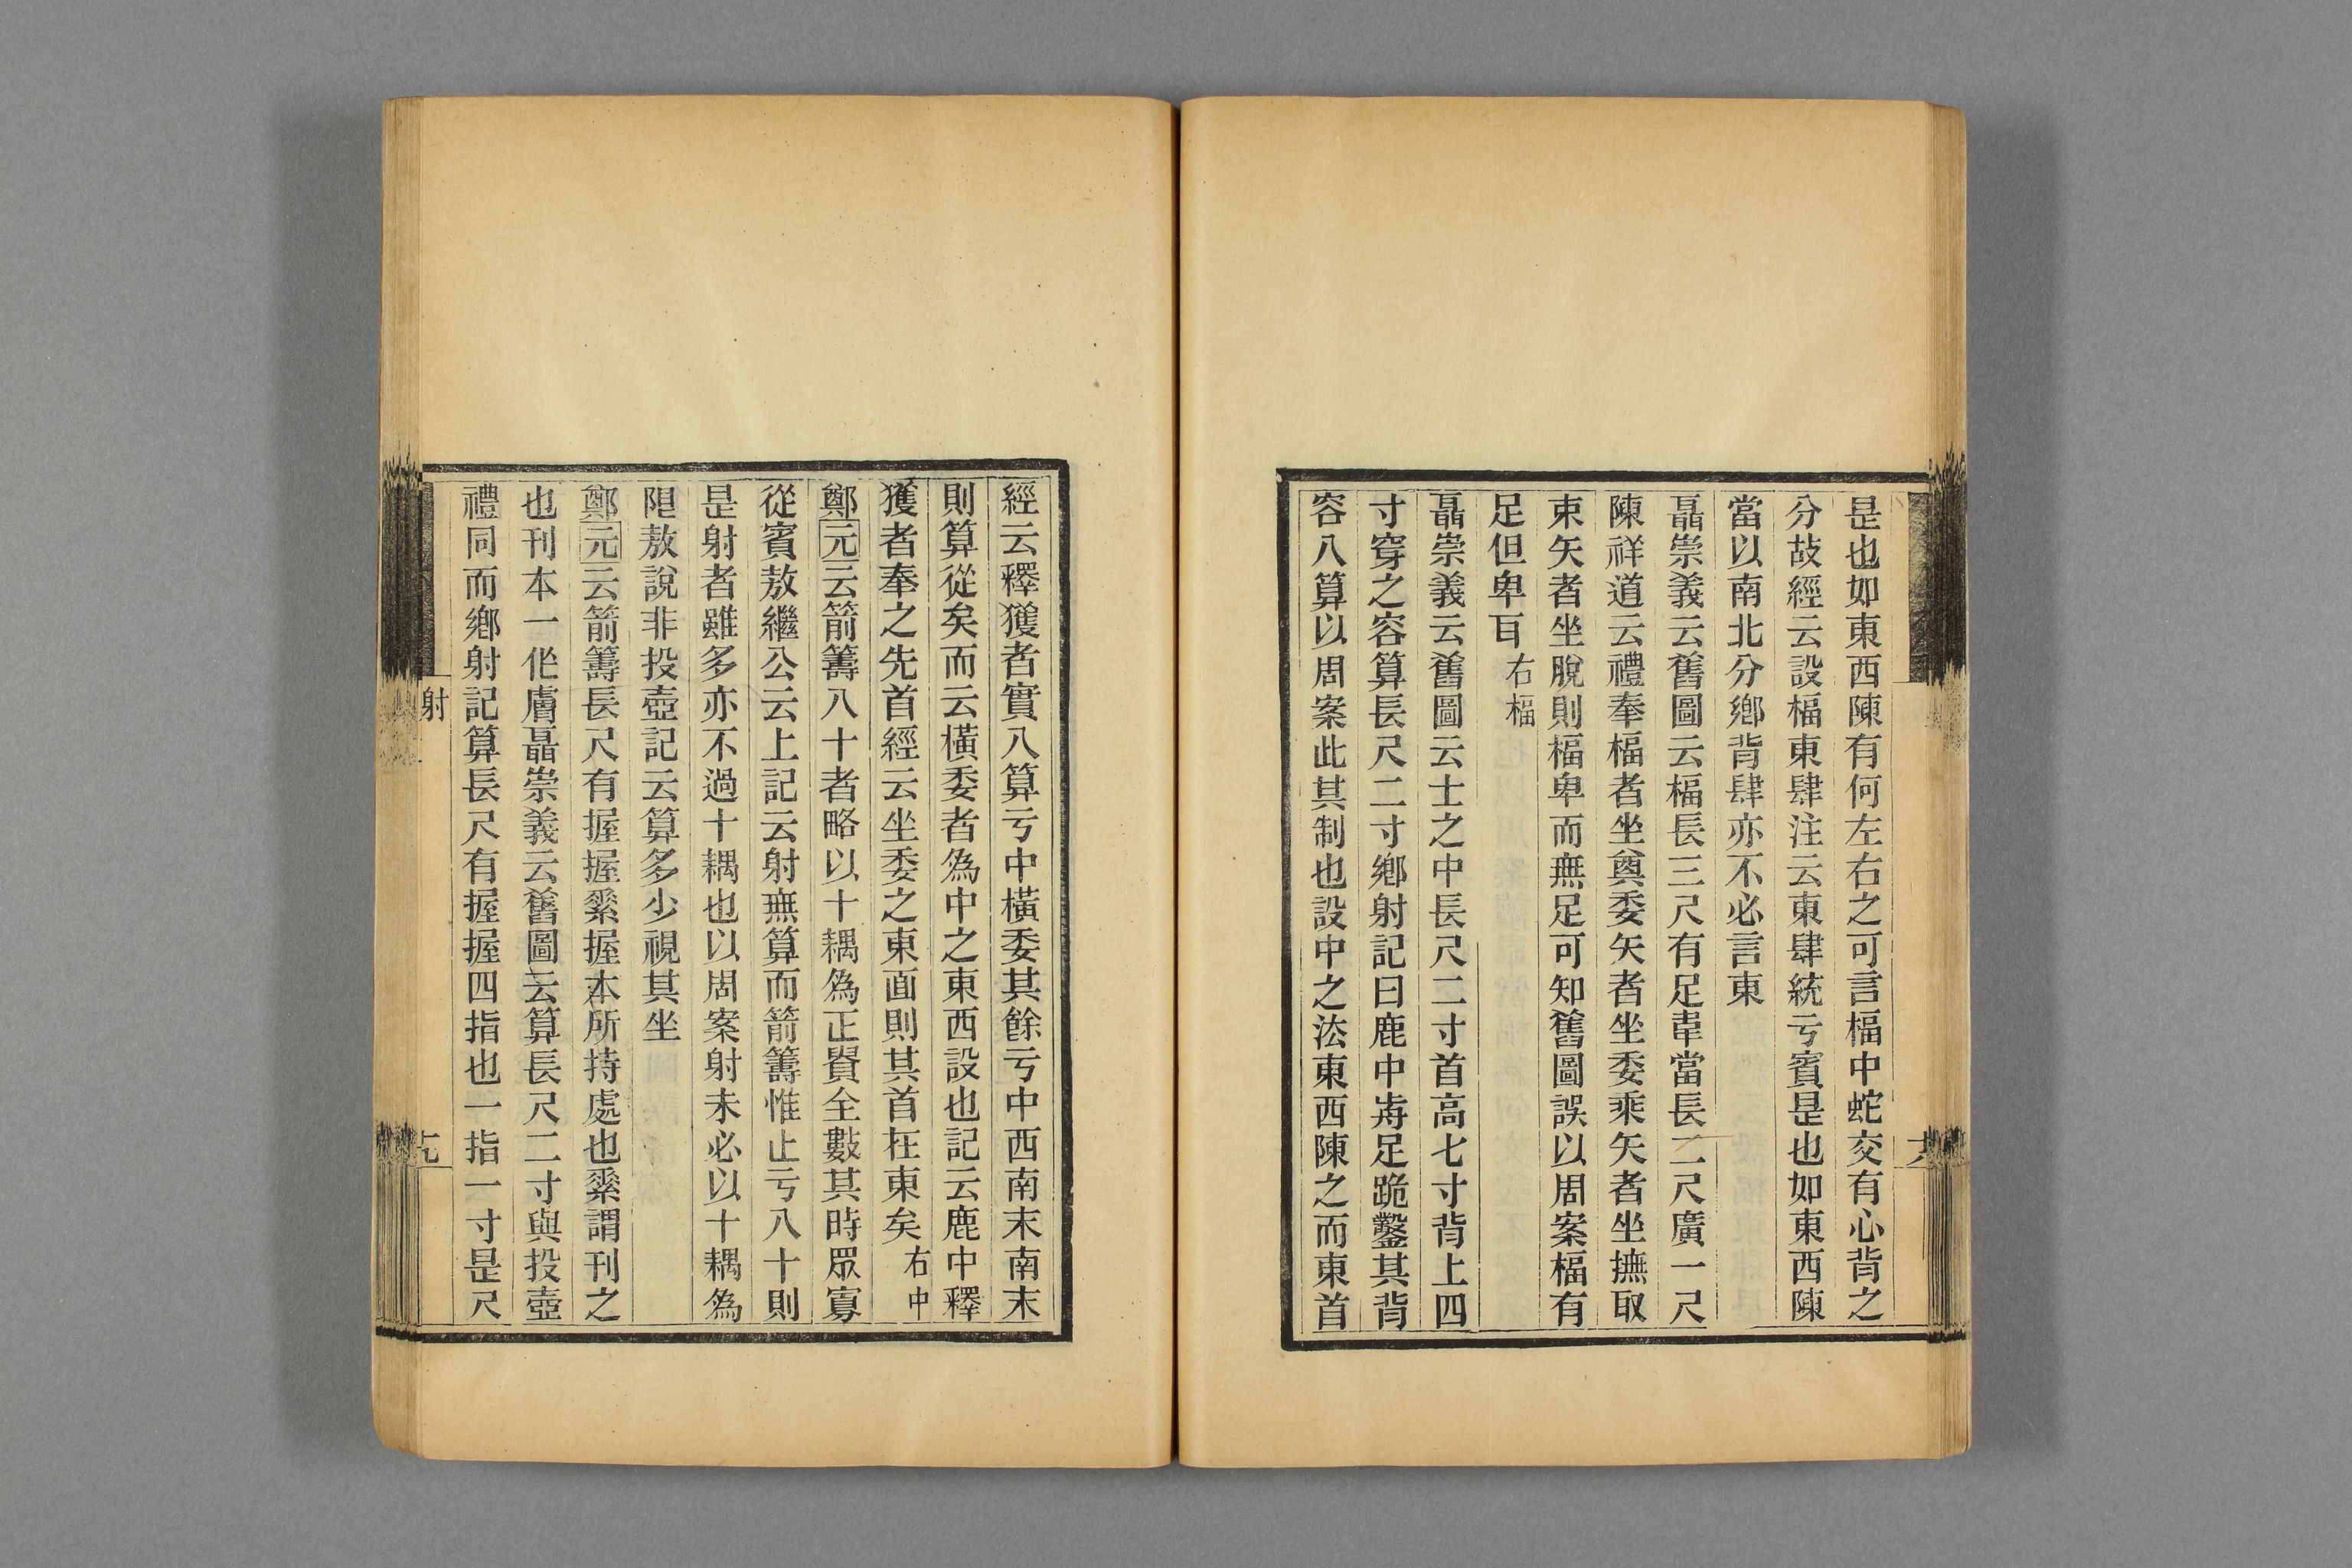 是也如東西陳有何左右之可言楅中蛇交有心背之
分故經云設楅東肆注云東肆統亏賓是也如東西陳
當以南北分鄉背肆亦不必言東
聶崇義云舊圖云楅長三尺有足韋當長二尺廣一尺
陳祥道云禮奉楅者坐奠委矢者坐委乘矢者坐撫取
束矢者坐脫則楅卑而無足可知舊圖誤以周案楅有
足但卑耳右楅
聶崇義云舊圖云士之中長尺二寸首高七寸背上四
寸穿之容算長尺二寸鄉射記曰鹿中歬足跪鑿其背
容八算以周案此其制也設中之法東西陳之而東首
經云釋獲者實八算亏中橫委其餘亏中西南末南末
則算從矣而云橫委者為中之東西設也記云鹿中釋
獲者奉之先首經云坐委之東面則其首在東矣右中
鄭元云箭籌八十者略以十耦為正貴全數其時眾寡
從賓敖繼公云上記云射無算而箭籌惟止亏八十則
是射者雖多亦不過十耦也以周案射未必以十耦為
限敖說非投壺記云算多少視其坐
鄭元云箭籌長尺有握握素握本所持處也素謂刊之
也刊本一作膚聶崇義云舊圖云算長尺二寸與投壺
禮同而鄉射記算長尺有握握四指也一指一寸是尺
射